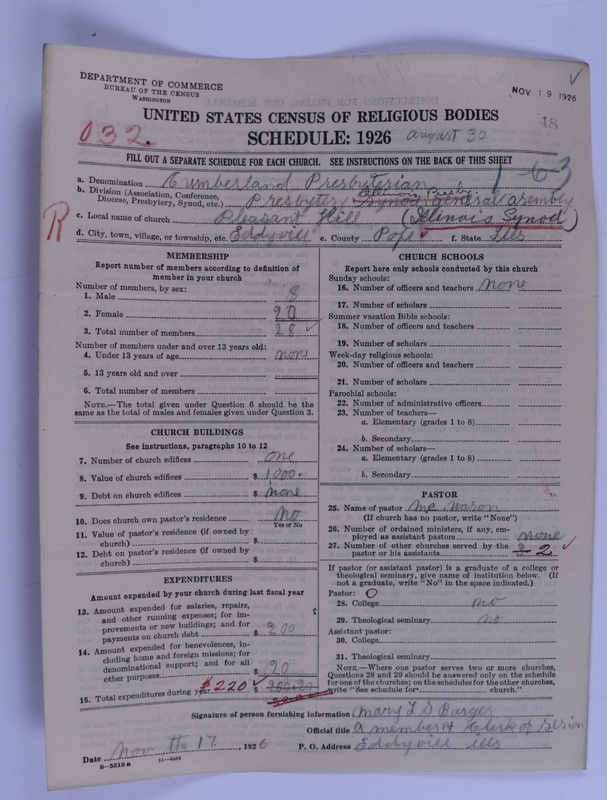 DEPARTMENT OF COMMERCE
BUREAU OF THE CENSUS
WASHINGTON
NOV 19 1926
48
UNITED STATES CENSUS OF RELIGIOUS BODIES
032. SCHEDULE: 1926 august 30
FILL OUT A SEPARATE SCHEDULE FOR EACH CHURCH. SEE INSTRUCTIONS ON THE BACK OF THIS SHEET
1 63
a. Denomination Cumberland Presbyterian
Illinois Presby
b. Division (Association, Conference, Diocese, Presbytery, Synod, etc.) Presbytery Synod general assembly
R
c. Local name of church Pleasant Hill (Illinois Synod)
d. City, town, village, or township, etc. Eddyvill e. County Pope f. State Ills
MEMBERSHIP
Report number of members according to definition of
member in your church
Number of members, by sex:
1. Male 8
2. Female 20
3. Total number of members 28
Number of members under and over 13 years old:
4. Under 13 years of age none
5. 13 years old and over
6. Total number of members
NOTE.—The total given under Question 6 should be the
same as the total of males and females given under Question 3.
CHURCH BUILDINGS
See instructions, paragraphs 10 to 12
7. Number of church edifices one
8. Value of church edifices $ 1000.
9. Debt on church edifices $ none
10. Does church own pastor's residence no
Yes or No
11. Value of pastor's residence (if owned by
church) $
12. Debt on pastor's residence (if owned by
church) $
EXPENDITURES
Amount expended by your church during last fiscal year
13. Amount expended for salaries, repairs,
and other running expenses; for im-
provements or new buildings; and for
payments on church debt $ 200
14. Amount expended for benevolences, in-
cluding home and foreign missions; for
denominational support; and for all
other purposes $ 20
15. Total expenditures during year $220 $
CHURCH SCHOOLS
Report here only schools conducted by this church
Sunday schools:
16. Number of officers and teachers none
17. Number of scholars
Summer vacation Bible schools:
18. Number of officers and teachers
19. Number of scholars
Week-day religious schools:
20. Number of officers and teachers
21. Number of scholars
Parochial schools:
22. Number of administrative officers
23. Number of teachers—
a. Elementary (grades 1 to 8)
b. Secondary
24. Number of scholars—
a. Elementary (grades 1 to 8)
b. Secondary
PASTOR
25. Name of pastor Mc. Wason
(If church has no pastor, write "None")
26. Number of ordained ministers, if any, em-
ployed as assistant pastors none
27. Number of other churches served by the
pastor or his assistants 2 2
If pastor (or assistant pastor) is a graduate of a college or
theological seminary, give name of institution below. (If
not a graduate, write "No" in the space indicated.)
Pastor: O
28. College no
29. Theological seminary no
Assistant pastor:
30. College
31. Theological seminary
NOTE.—Where one pastor serves two or more churches,
Questions 28 and 29 should be answered only on the schedule
for one of the churches; on the schedules for the other churches,
write "See schedule for church."
Signature of person furnishing information Mary L S Barger
Official title a member & Clerk of Session
Date Nov the 17, 1926 P. O. Address Eddyvill Ills
8—5518 a